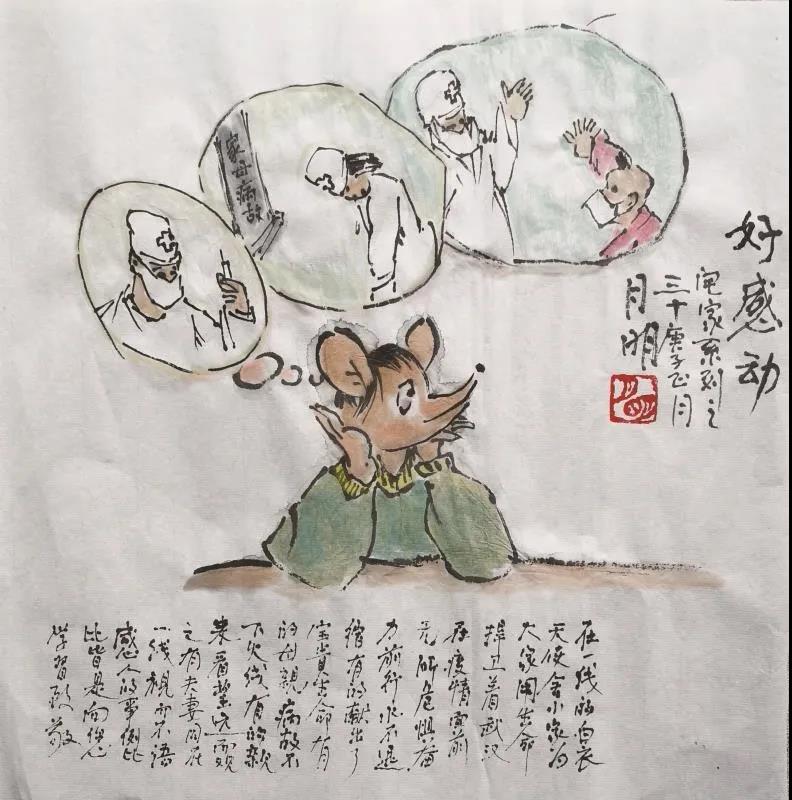 好感动
宅家系列之
三十庚子正月
月明
家母病故
在一线的白衣
天使舍小家为
大家用生命
捍卫着武汉
在疫情面前
无所危惧奋
力前行永不退
缩有的献出了
宝贵生命有
的母親病故不
下火线有的親
来看望而观
之有夫妻同在
一线視而不语
感人的事例比
比皆是向您
学習致敬